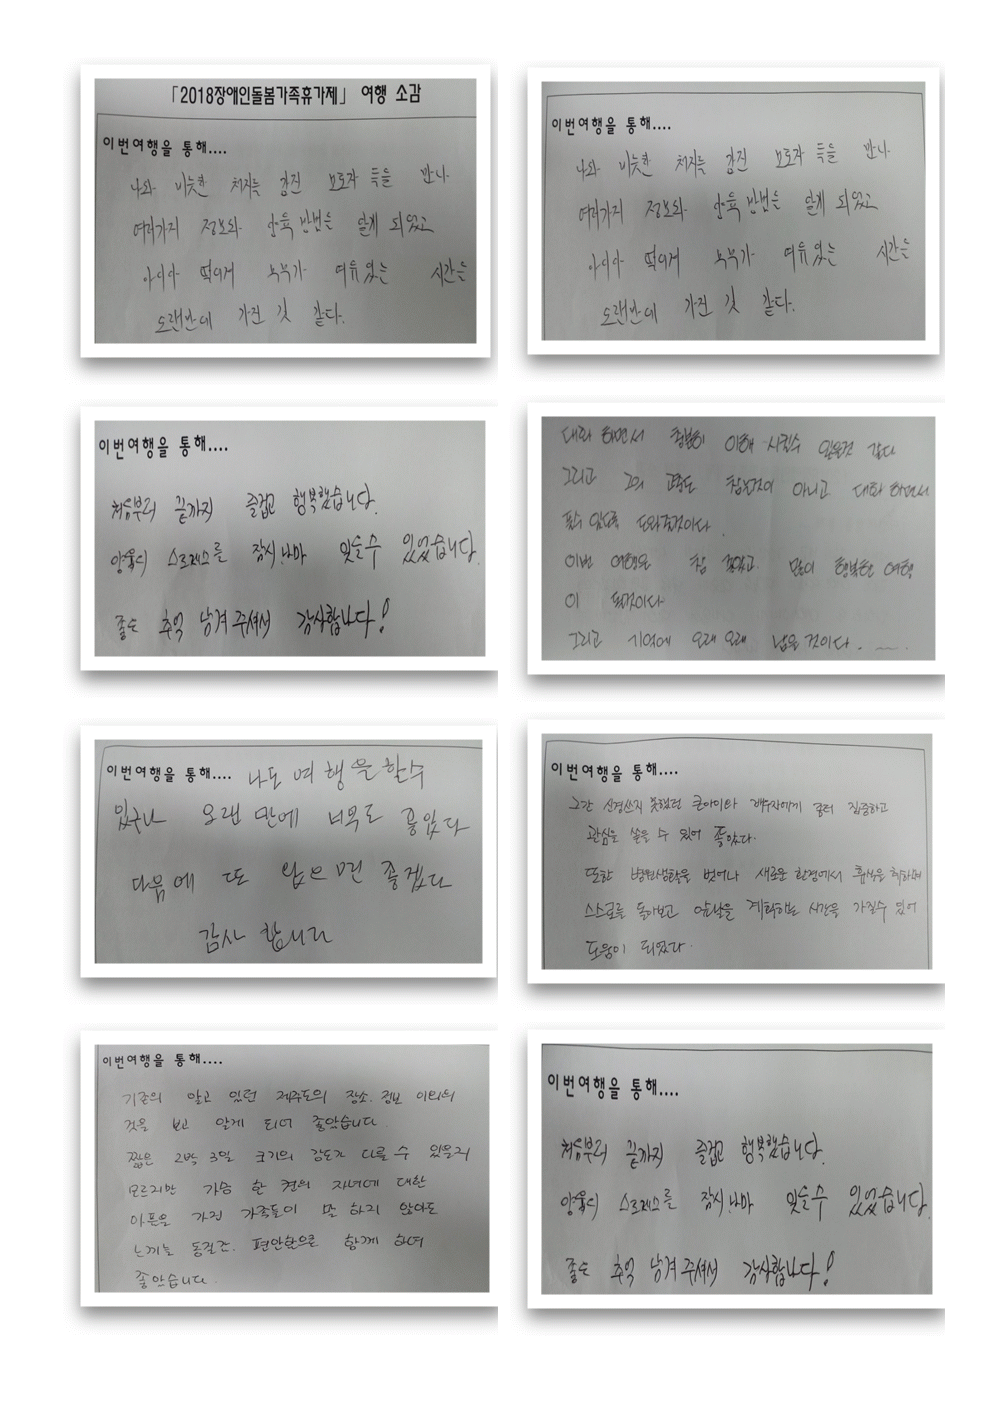 「2018장애인돌봄가족휴가제」 여행 소감
이번여행을 통해....
나와 비슷한 처지를 가진 보호자 득을 만나
여러가지 정보와 양육 방법을 알게 되었고
아이와 떨어져 부부가 여유있는 시간을
오랜만에 가진 것 같다.
이번여행을 통해....
나와 비슷한 처지를 가진 보호자 득을 만나
여러가지 정보와 양육 방법을 알게 되었고
아이와 떨어져 부부가 여유있는 시간을
오랜만에 가진 것 같다.
이번여행을 통해....
처음부터 끝까지 즐겁고 행복했습니다.
양육의 스트레스를 잠시나마 잊을수 있었습니다.
좋은 추억 남겨주셔서 감사합니다!
대화 하면서 충분히 이해 시킬수 있을것 같다
그리고 그의 고통도 참는것이 아니고 대화 하면서
풀수 있도록 도와줄것이다.
이번 여행은 참 좋았고 많이 행복한 여행
이 될것이다
그리고 기억에 오래오래 남을것이다. ......
이번여행을 통해.... 나도 여행을 할수
있구나 오랜만에 너무도 좋았다
다음에 또 왔으면 좋겠다
감사 합니다
이번여행을 통해....
그간 신경쓰지 못했던 큰아이와 배우자에게 좀더 집중하고
관심을 쏟을 수 있어 좋았다.
또한 병원생활을 벗어나 새로운 환경에서 휴식을 취하며
스스로를 돌아보고 앞날을 계획하는 시간을 가질수 있어
도움이 되었다.
이번여행을 통해....
기존의 알고 있던 제주도의 장소. 정보 이외의
것을 보고 알게 되어 좋았습니다.
짧은 2박 3일 크기의 강도가 다를 수 있을지
모르지만 가슴 한 켠의 자녀에 대한
아픔을 가진 가족들이 말 하지 않아도
느끼는 동질감. 편안함으로 함께 하여
좋았습니다.
이번여행을 통해....
처음부터 끝까지 즐겁고 행복했습니다.
양육의 스트레스를 잠시나마 잊을수 있었습니다.
좋은 추억 남겨주셔서 감사합니다!